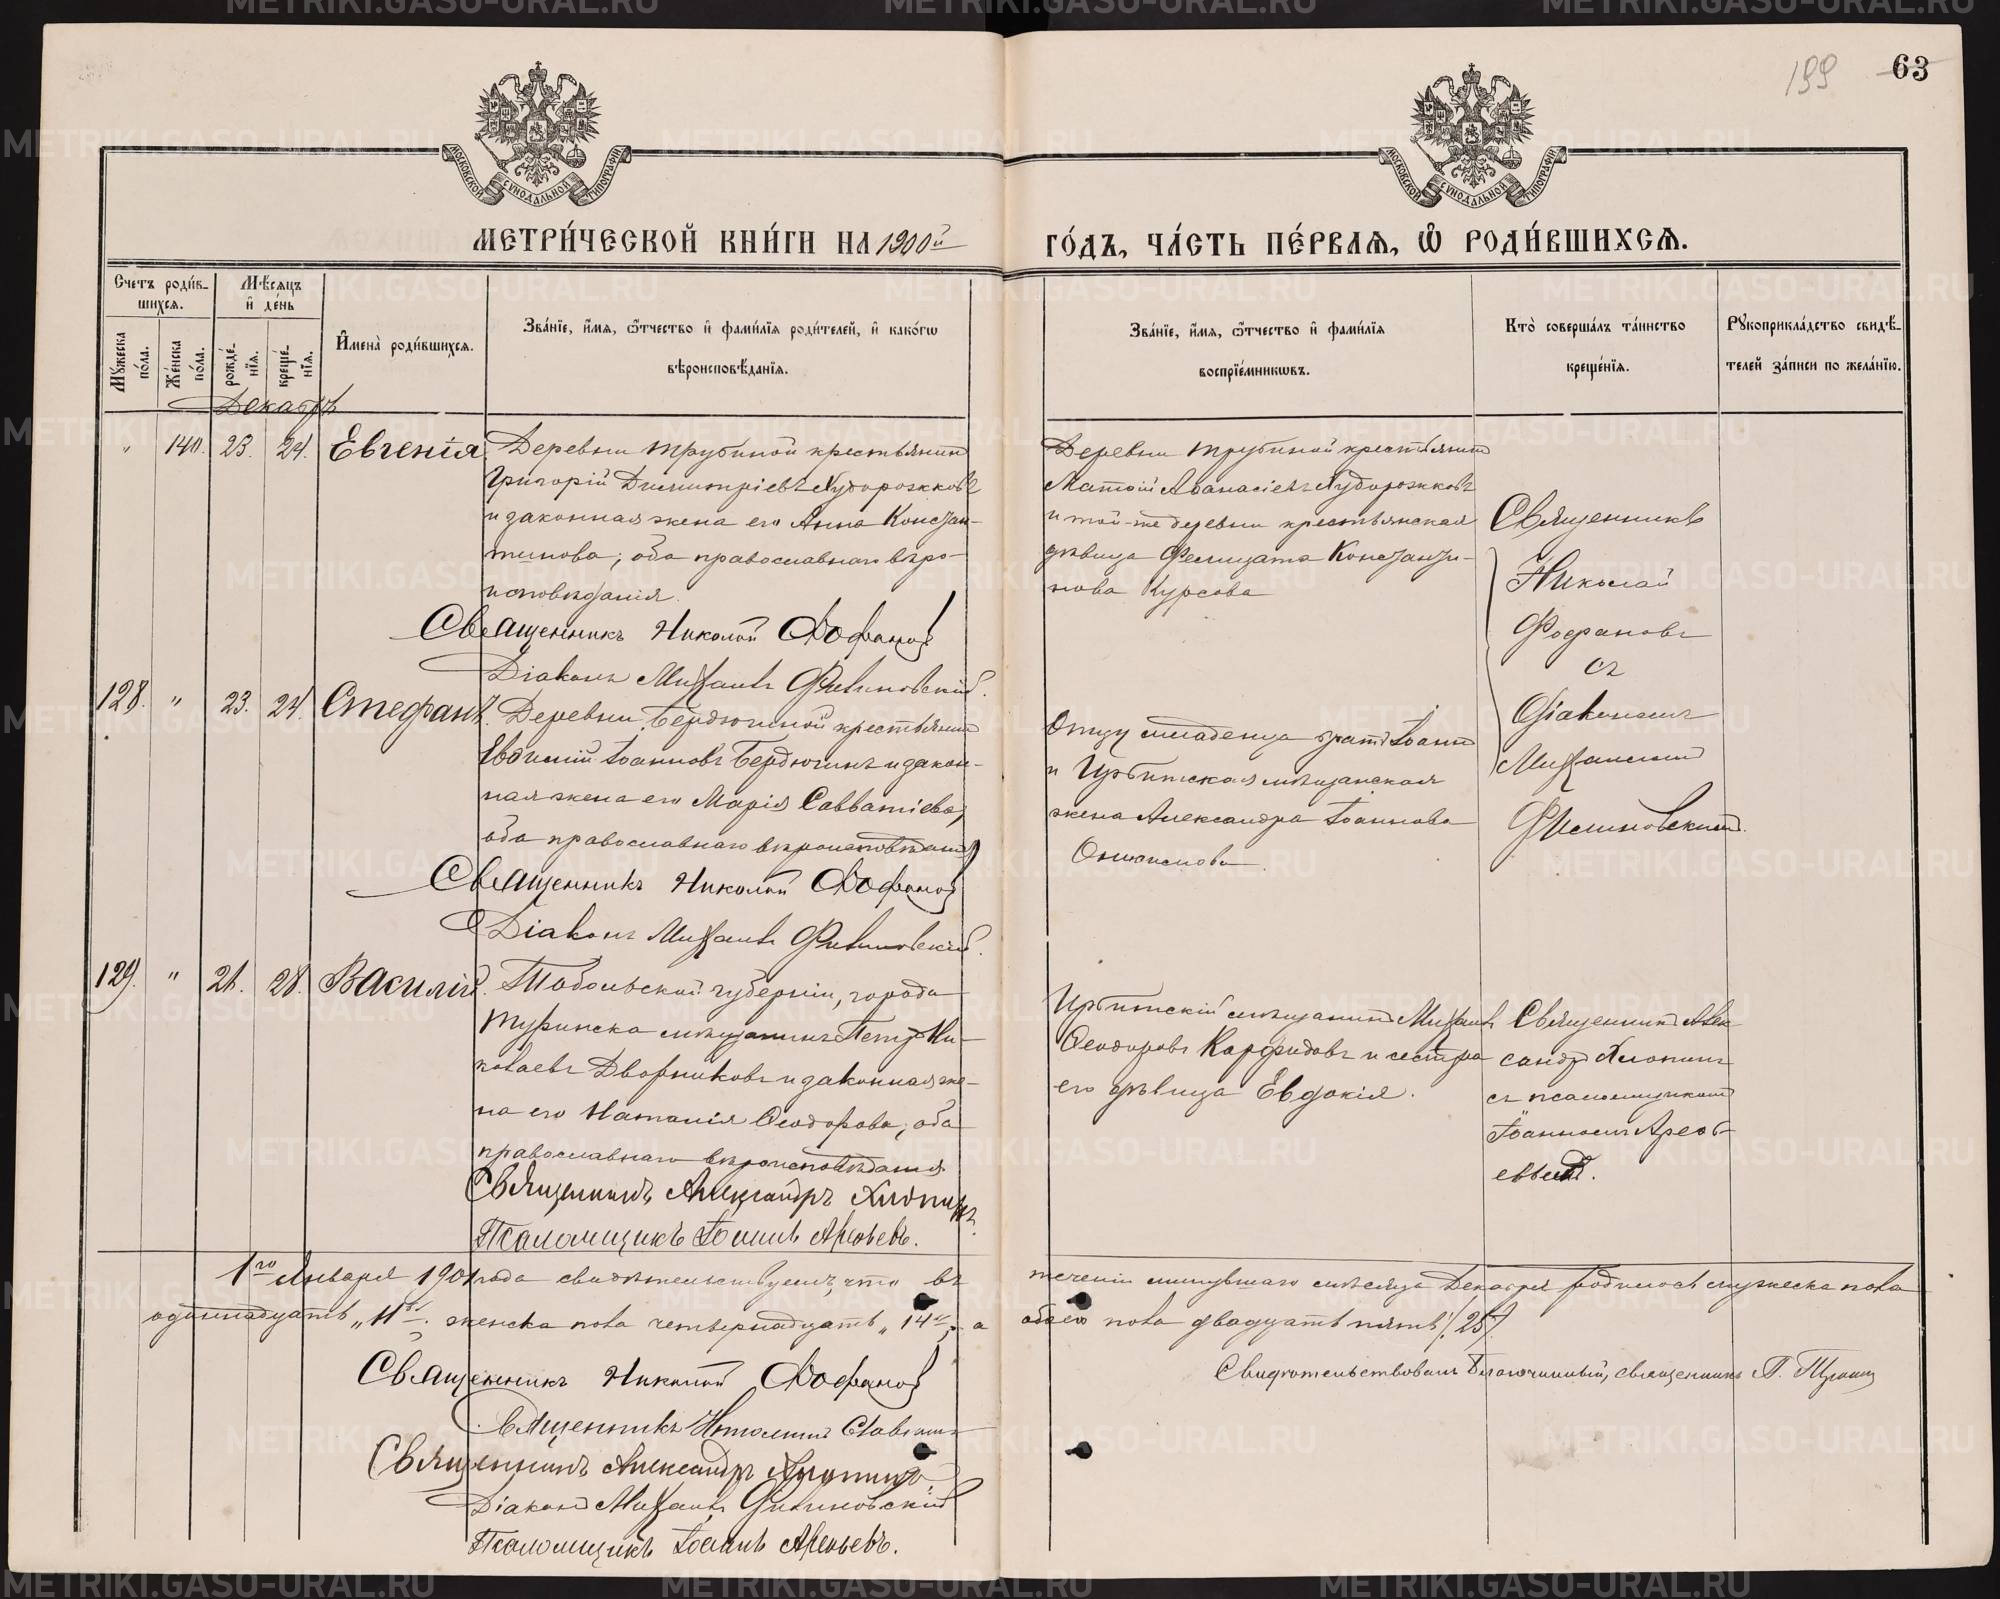 199 63
МОСКОВСКОЙ СУНОДАЛЬНОЙ ТИПОГРАФІИ
МОСКОВСКОЙ СУНОДАЛЬНОЙ ТИПОГРАФІИ
МЕТРИ́ЧЕСКОЙ КНИ́ГИ НА 1900й
ГО́ДЪ, ЧА́СТЬ ПЕ́РВАЯ, Ѡ҆ РОДИ́ВШИХСЯ.
Счетъ роди́в-
шихся.
Мꙋжеска по́ла.
Же́нска по́ла.
Мѣ́сяцъ и҆ де́нь
рожде́нїя.
креще́нїя.
И҆мена̀ роди́вшихся.
Зва́нїе, и҆́мя, ѻ҆́тчество и҆ фами́лїя роди́телей, и҆ како́гѡ
вѣроисповѣ́данїя.
Зва́нїе, и҆́мя, ѻ҆́тчество и҆ фами́лїя
воспрїе́мникѡвъ.
Кто̀ соверша́лъ та́инство
креще́нїя.
Рꙋкоприкла́дство свидѣ́-
телей за́писи по жела́нїю.
Декабрь
" 140. 23. 24. Евгенія
Деревни Трубиной крестьянинъ
Григорій Димитріевъ Худорожковъ
и законная жена его Анна Констан-
тинова; оба православнаго вѣро-
исповѣданія.
Священникъ Николай Фофановъ
Діаконъ Михаилъ Филиновскій.
Деревни Трубиной крестьянинъ
Матѳій Аѳанасіевъ Худорожковъ
и той-же деревни крестьянская
дѣвица Фелицата Константи-
нова Курсова
Священникъ
Николай
Фофановъ
съ
Діакономъ
Михаиломъ
Филиновскимъ.
128. " 23. 24. Стефанъ.
Деревни Бердюгиной крестьянинъ
Евѳимій Іоанновъ Бердюгинъ и закон-
ная жена его Марія Савватіева,
оба православнаго вѣроисповѣданія
Священникъ Николай Фофановъ
Діаконъ Михаилъ Филиновскій.
Отцу младенца братъ Іоаннъ
и Ирбитская мѣщанская
жена Александра Іоаннова
129. " 21. 28. Василій.
Тобольской губерніи, города
Туринска мѣщанинъ Петръ Ни-
колаевъ Дворниковъ и законная же-
на его Наталія Ѳеодорова; оба
православнаго вѣроисповѣданія
Священникъ Александръ Хлопинъ.
Псаломщикъ Іоаннъ Арефьевъ.
Ирбитскій мѣщанинъ Михаилъ
Ѳеодоровъ Карфидовъ и сестра
его дѣвица Евдокія.
Священникъ Алек-
сандръ Хлопинъ
съ псаломщикомъ
Іоанномъ Ареф-
евымъ.
1го Января 1901 года свидѣтельствуемъ, что въ теченіи минувшаго мѣсяца Декабря родилось мужеска пола
одиннадцать "11", женска пола четырнадцать "14", а обоего пола двадцать пять /25/
Священникъ Николай Фофановъ
Свидѣтельствовалъ Благочинный, священникъ
Священникъ
Священникъ Александръ Хлопинъ
Діаконъ Михаилъ Филиновскій
Псаломщикъ Іоаннъ Арефьевъ.